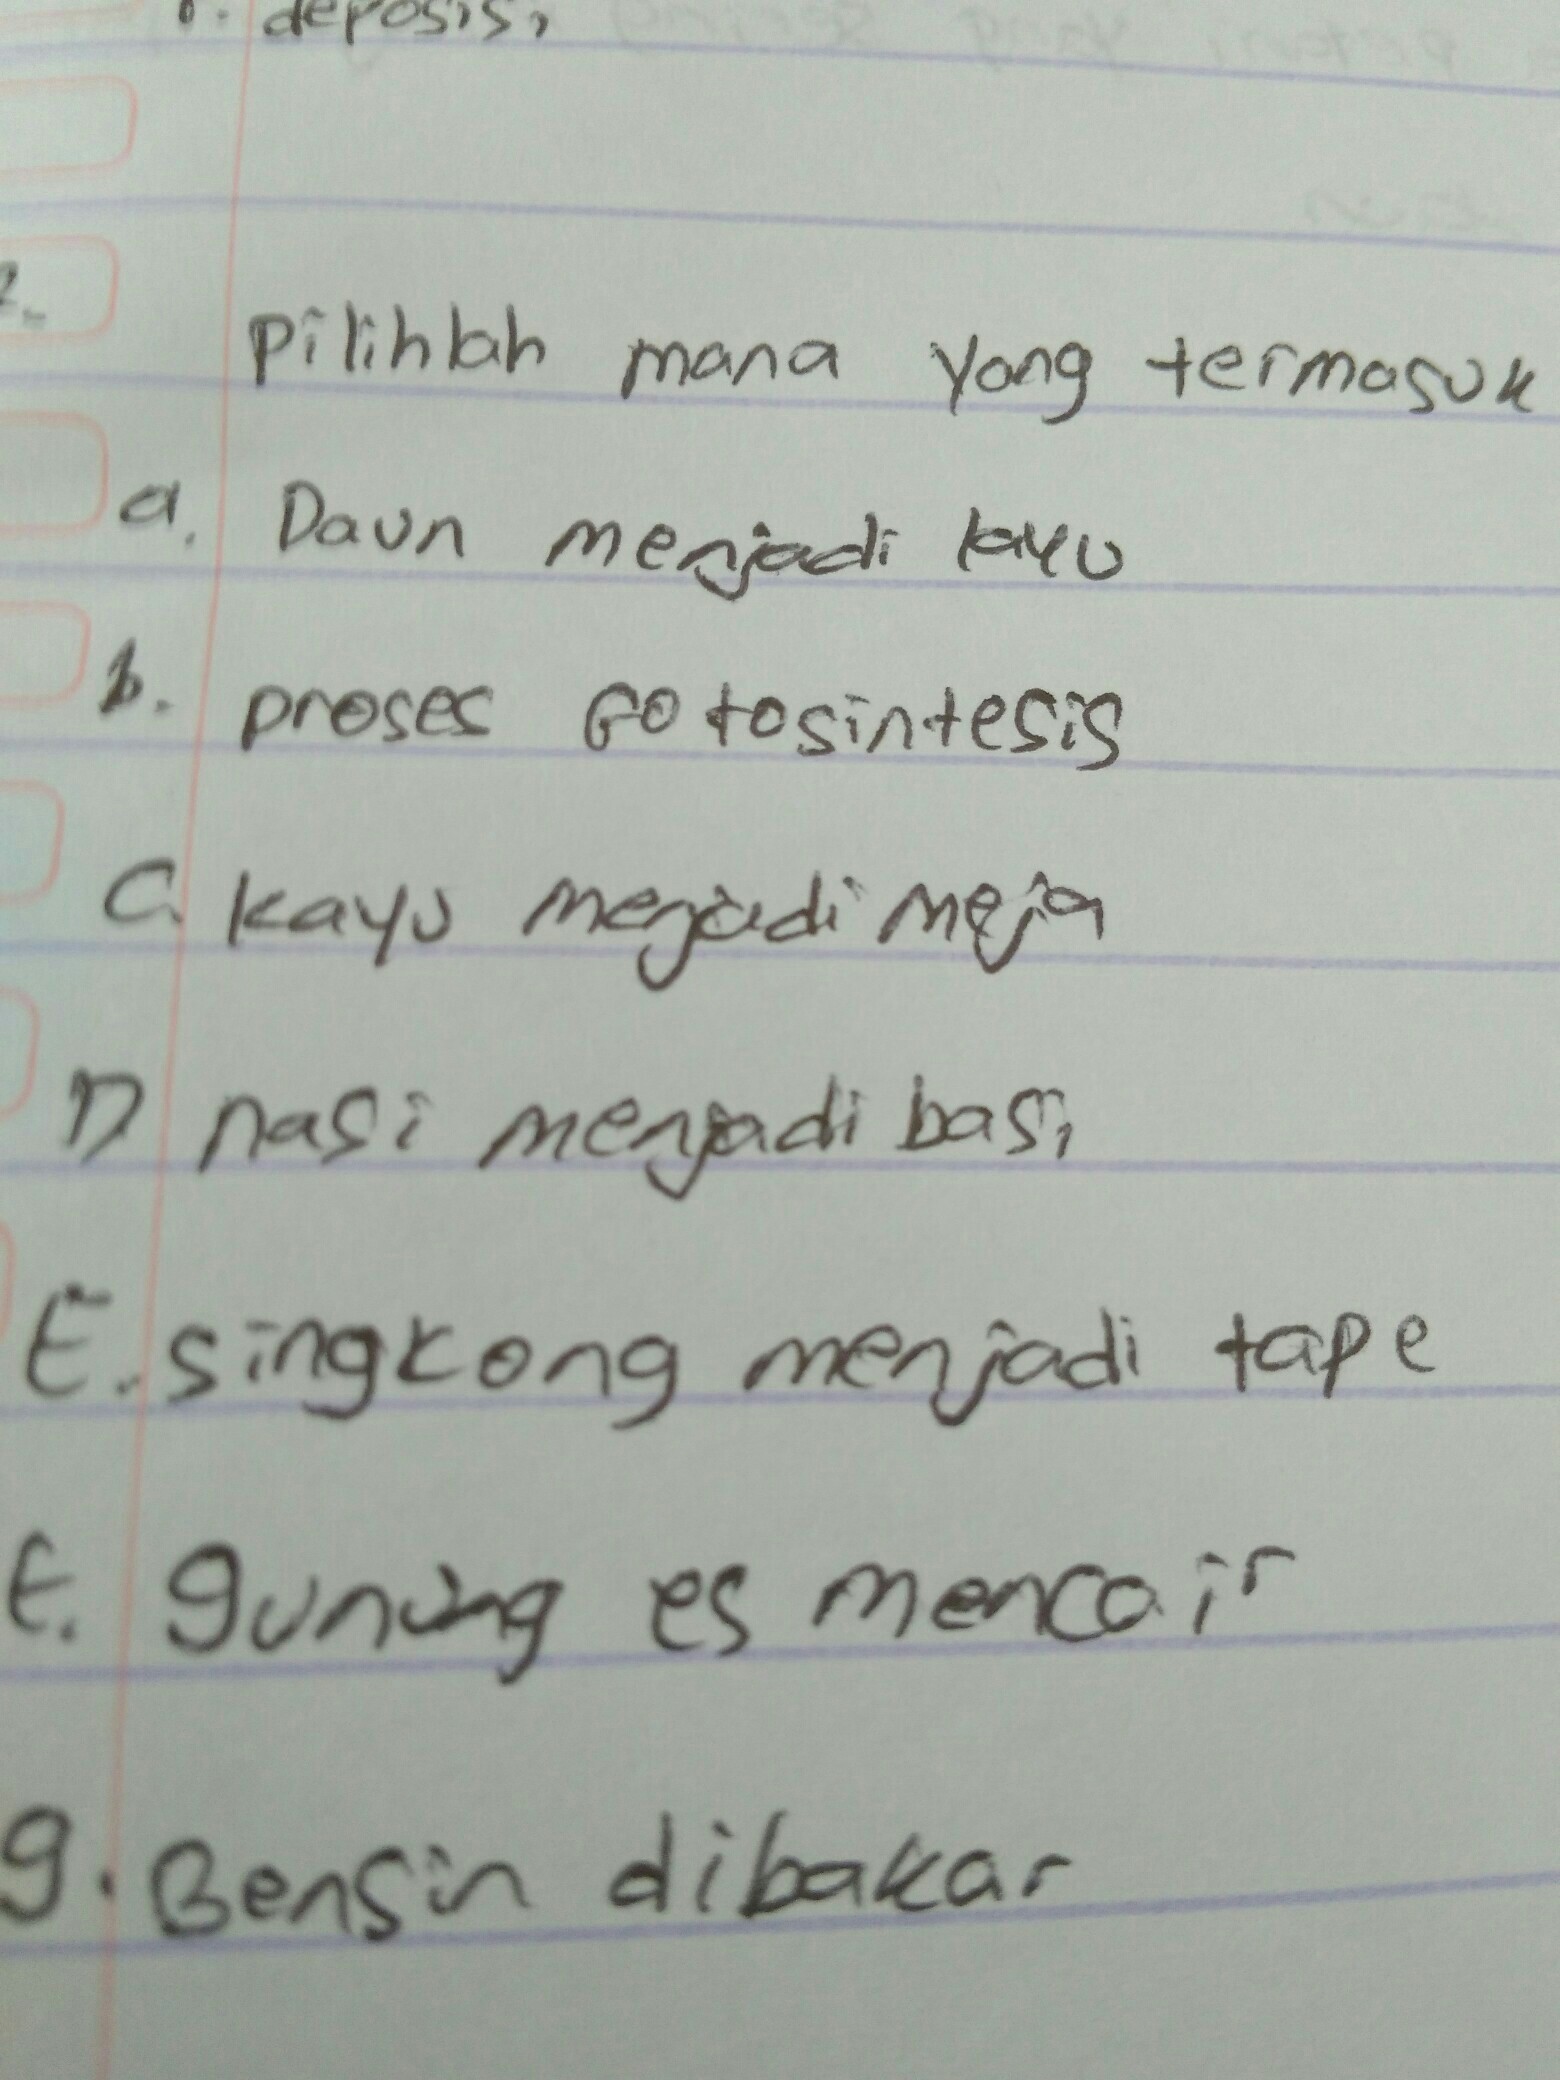 deposisi
2. Pilihlah mana yang termasuk
a. Daun menjadi kayu
b. proses Fotosintesis
C. kayu menjadi meja
D nasi menjadi basi
E. singkong menjadi tape
F. gunung es mencair
g. Bensin dibakar